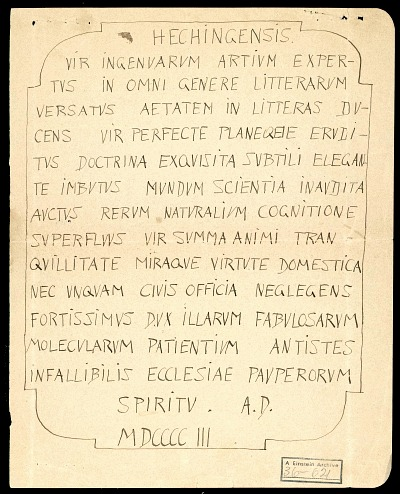 HECHINGENSIS.
VIR INGENUARUM ARTIUM EXPER-
TVS IN OMNI GENERE LITTERARUM
VERSATVS AETATEM IN LITTERAS DV-
CENS VIR PERFECTE PLANEQEIE ERVDI-
TVS DOCTRINA EXQVISITA SVBTILI ELEGAN
TE IMBVTVS MVNDVM SCIENTIA INAVDITA
AVCTVS RERVM NATVRALIVM COGNITIONE
SVPERFLVVS VIR SVMMA ANIMI TRAN
QVILLITATE MIRAQVE VIRTVTE DOMESTICA
NEC VNQVAM CIVIS OFFICIA NEGLEGENS
FORTISSIMVS DVX ILLARVM FABVLOSARVM
MOLECVLARVM PATIENTIVM ANTISTES
INFALLIBILIS ECCLESIAE PAVPERORVM
SPIRITV . A.D.
MDCCCC III
A Einstein Archive